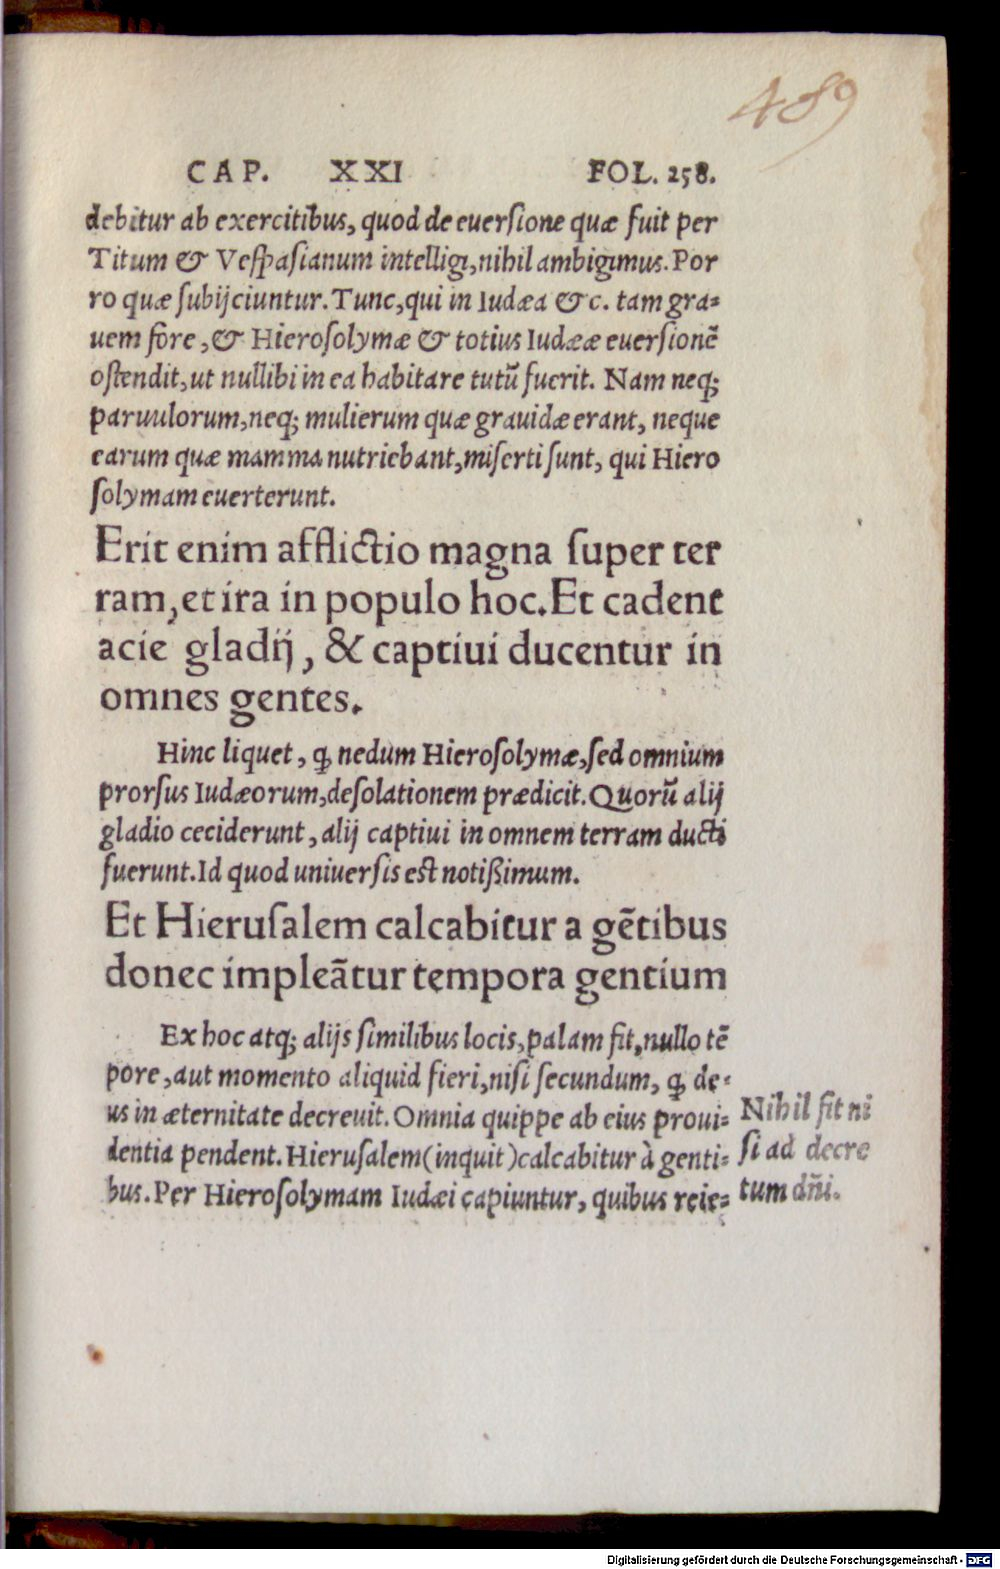 489
CAP. XXI FOL. 258.
debitur ab exercitibus, quod de euersione quæ fuit per
Titum & Vespasianum intelligi, nihil ambigimus. Por
ro quæ subijciuntur. Tunc, qui in Iudæa &c. tam gra-
uem fore, & Hierosolymæ & totius Iudææ euersionẽ
ostendit, ut nullibi in ea habitare tutũ fuerit. Nam neq;
paruulorum, neq; mulierum quæ grauidæ erant, neque
earum quæ mamma nutriebant, miserti sunt, qui Hiero
solymam euerterunt.
Erit enim afflictio magna super ter
ram, et ira in populo hoc. Et cadent
acie gladij, & captiui ducentur in
omnes gentes.
Hinc liquet, ꝙ nedum Hierosolymæ, sed omnium
prorsus Iudæorum, desolationem prædicit. Quorũ alij
gladio ceciderunt, alij captiui in omnem terram ducti
fuerunt. Id quod uniuersis est notißimum.
Et Hierusalem calcabitur a gẽtibus
donec impleãtur tempora gentium
Ex hoc atq; alijs similibus locis, palam fit, nullo tẽ
pore, aut momento aliquid fieri, nisi secundum, ꝙ de-
us in æternitate decreuit. Omnia quippe ab eius proui-
dentia pendent. Hierusalem (inquit) calcabitur à genti-
bus. Per Hierosolymam Iudæi capiuntur, quibus reie-
Nihil fit ni
si ad decre
tum dñi.
Digitalisierung gefördert durch die Deutsche Forschungsgemeinschaft - DFG